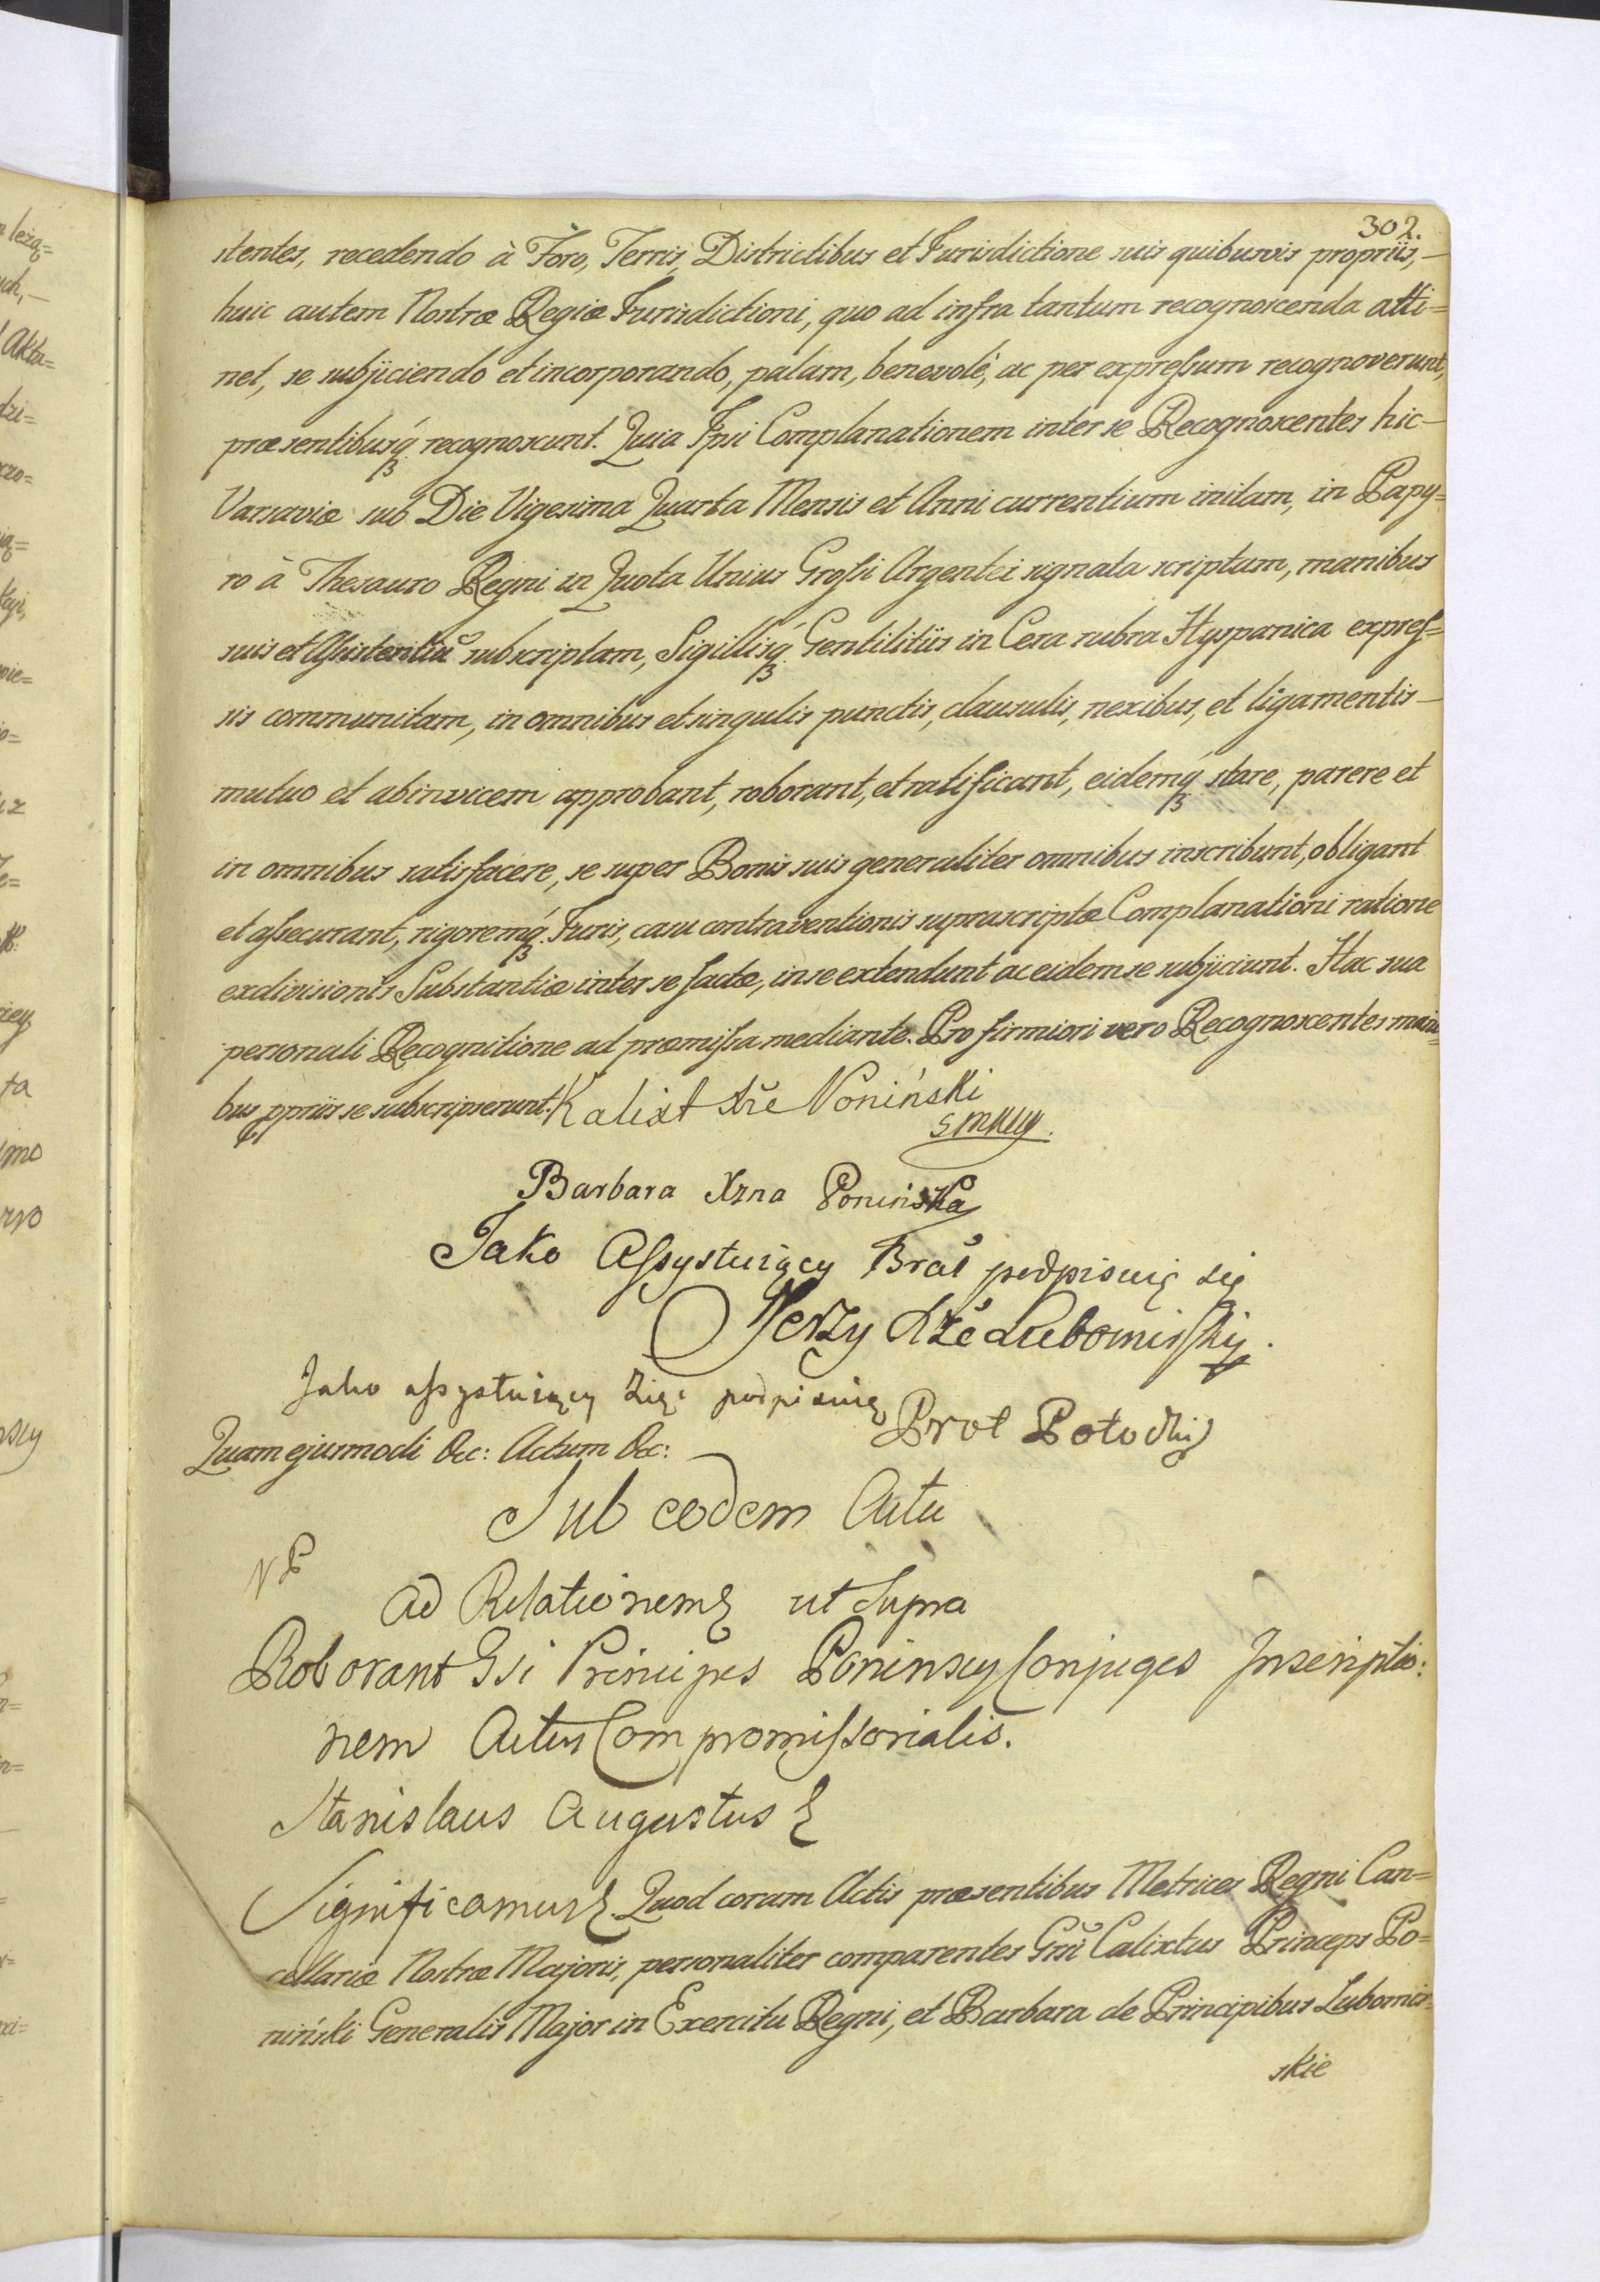 302.
stentes, recedendo à Foro, Terris, Districtibus et Jurisdictione suis quibusvis propriis,—
huic autem Nostræ Regiæ Jurisdictioni, quo ad infra tantum recognoscenda atti=
net, se subjiciendo et incorporando, palam, benevolè, ac per expreſsum recognoverunt,
præsentibusq́ꝫ recognoscunt. Quia Ipsi Complanationem inter se Recognoscentes hic—
Varsaviæ sub Die Vigesima Quarta Mensis et Anni currentium initam, in Papy=
ro à Thesauro Regni in Quota Unius Groſsi Argentei signata scriptum, manibus
suis et Aſsistentiũ subscriptam, Sigillisq́ꝫ Gentilitiis in Cera rubra Hyspanica expreſ=
sis communitam, in omnibus et singulis punctis, clausulis, nexibus, et ligamentis—
mutuo et abinvicem approbant, roborant, et ratificant, eidemq́ꝫ stare, parere et
in omnibus satisfacere, se super Bonis suis generaliter omnibus inscribunt, obligant
et aſsecurant, rigoremq́ꝫ Juris, casu contraventionis suprascriptæ Complanationi ratione
exdivisionis Substantiæ inter se factæ, in se extendunt ac eidem se subjiciunt. Hac sua
personali Recognitione ad præmiſsa mediante. Pro firmiori vero Recognoscentes mani=
bus ppriis se subscripserunt. Kalixt Xże Poniński
SMKUY.
Barbara Xzna Poninska
Jako Aſsystuiący Brat podpisuię się
Jerzy Xże Lubomirſky.
Jako aſsystuiący Zięć podpisuię
Prot Potocki
Quam ejusmodi &c: Actum &c:
Sub eodem Actu
NP
Ad Relationem ut Supra
Roborant Gsi Principes Poninscy Conjuges Inscriptio:
nem Actus Compromiſsorialis.
Stanislaus Augustus
Significamus Quod coram Actis præsentibus Metrices Regni Can=
cellariæ Nostræ Majoris, personaliter comparentes Gsi Calixtus Princeps Po=
niński Generalis Major in Exercitu Regni, et Barbara de Principibus Lubomir=
skie